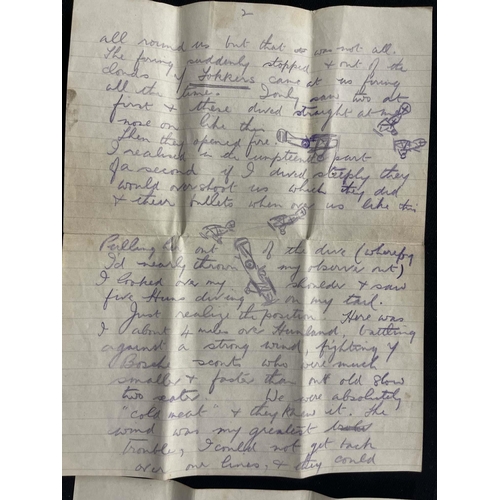 2
all round us but that was not all.
The firing suddenly stopped & out of the
clouds FOKKERS came at us firing
all the time. I only saw two at
first & these dived straight at me
nose on like this
Then they opened fire.
I realised in the umpteenth part
of a second if I dived steeply they
would overshoot us which they did
& their bullets went over us like this
Pulling her out of the dive (whereby
I'd nearly thrown my observer out)
I looked over my shoulder & saw
five Huns diving on my tail.
Just realize the position. Here was
I about 4 miles over Hunland, battling
against a strong wind, fighting 4
Bosch scouts who were much
smaller & faster than our old slow
two seater. We were absolutely
"cold meat" & they knew it. The
wind was my greatest
trouble, I could not get back
over our lines, & they could